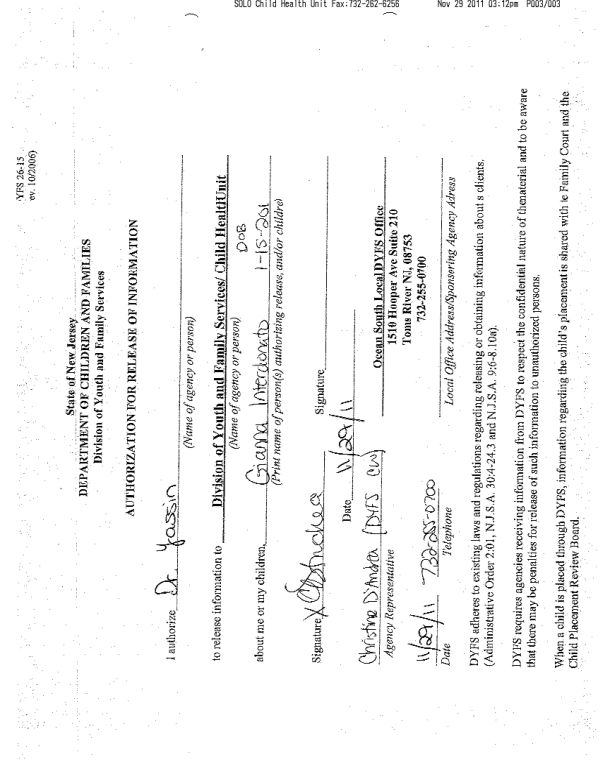 SOLO Child Health Unit Fax:732-262-6256 Nov 29 2011 03:12pm P003/003
YFS 26-15
ev. 10/2006)
State of New Jersey
DEPARTMENT OF CHILDREN AND FAMILIES
Division of Youth and Family Services
AUTHORIZATION FOR RELEASE OF INFORMATION
I authorize Dr. Yassin
(Name of agency or person)
to release information to Division of Youth and Family Services/ Child Health Unit
(Name of agency or person)
DOB
about me or my children, Gianna Interdonato 1-15-201
(Print name of person(s) authorizing release, and/or childre)
Signature X Signature
Date 11/29/11
Christine D'Andrea (DYFS CW)
Agency Representative
Ocean South Local DYFS Office
1510 Hooper Ave Suite 210
Toms River NJ, 08753
732-255-0700
11/29/11 732-255-0700
Date Telephone Local Office Address/Sponsering Agency Adress
DYFS adheres to existing laws and regulations regarding releasing or obtaining information about s clients.
(Administrative Order 2:01, N.J.S.A. 30:4-24.3 and N.J.S.A. 9:6-8.10a).
DYFS requires agencies receiving information from DYFS to respect the confidential nature of thenaterial and to be aware
that there may be penalties for release of such information to unauthorized persons.
When a child is placed through DYFS, information regarding the child's placement is shared with te Family Court and the
Child Placement Review Board.